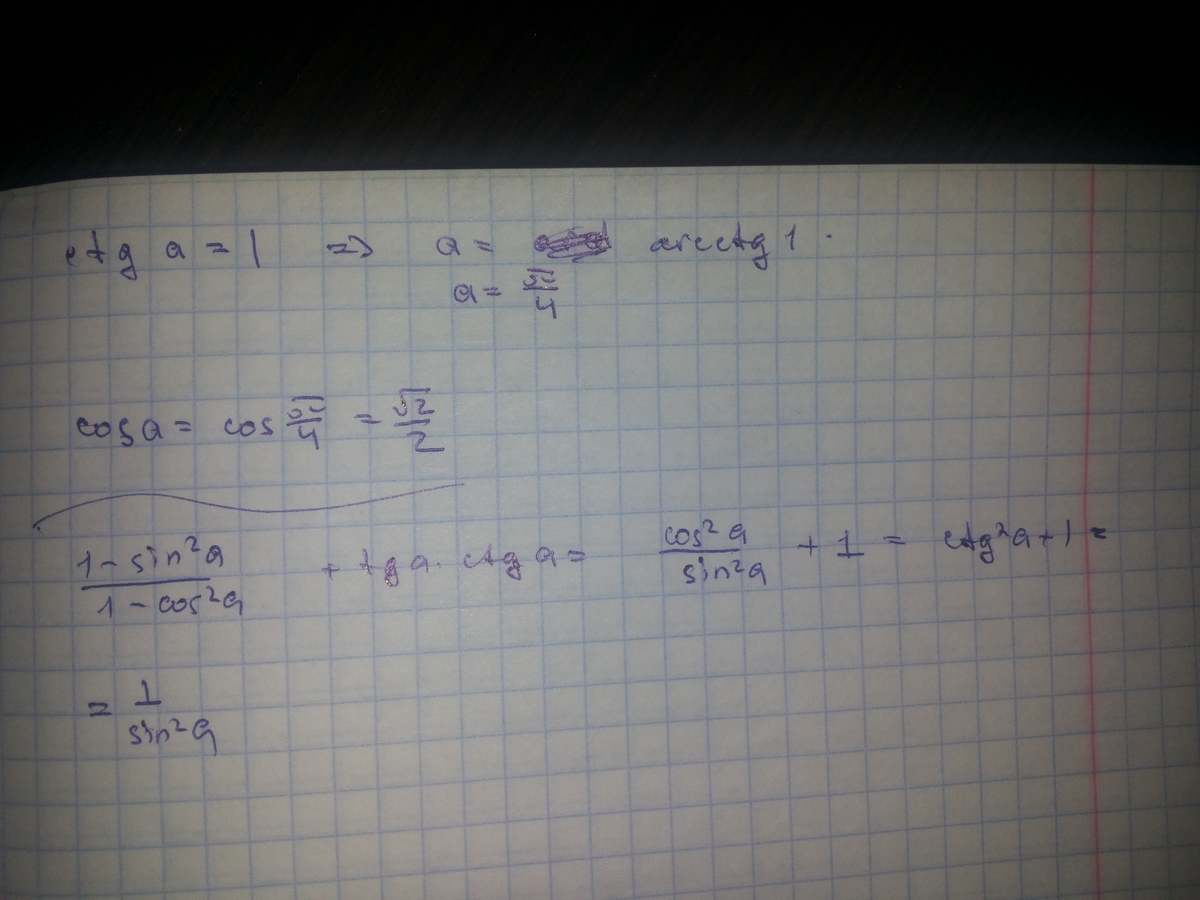 ctg a = 1 => a = arcctg 1 .
a = π/4
cos a = cos π/4 = √2/2
(1 - sin²a)/(1 - cos²a) + tg a · ctg a = cos²a/sin²a + 1 = ctg²a + 1 =
= 1/sin²a